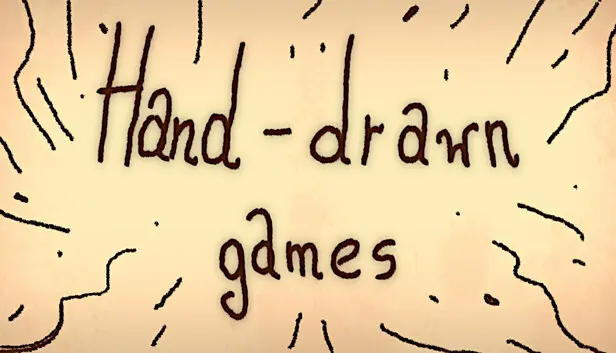 Hand-drawn
games